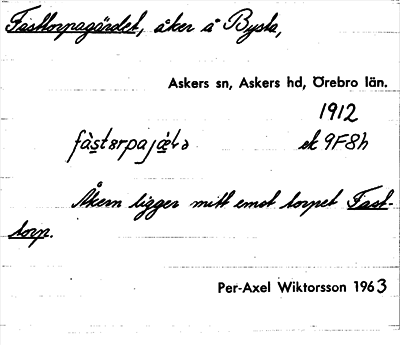 Fastorpagärdet, åker å Bysta,
Askers sn, Askers hd, Örebro län.
1912
ek 9F8h
Åkern ligger mitt emot torpet Fast-
torp.
Per-Axel Wiktorsson 1963